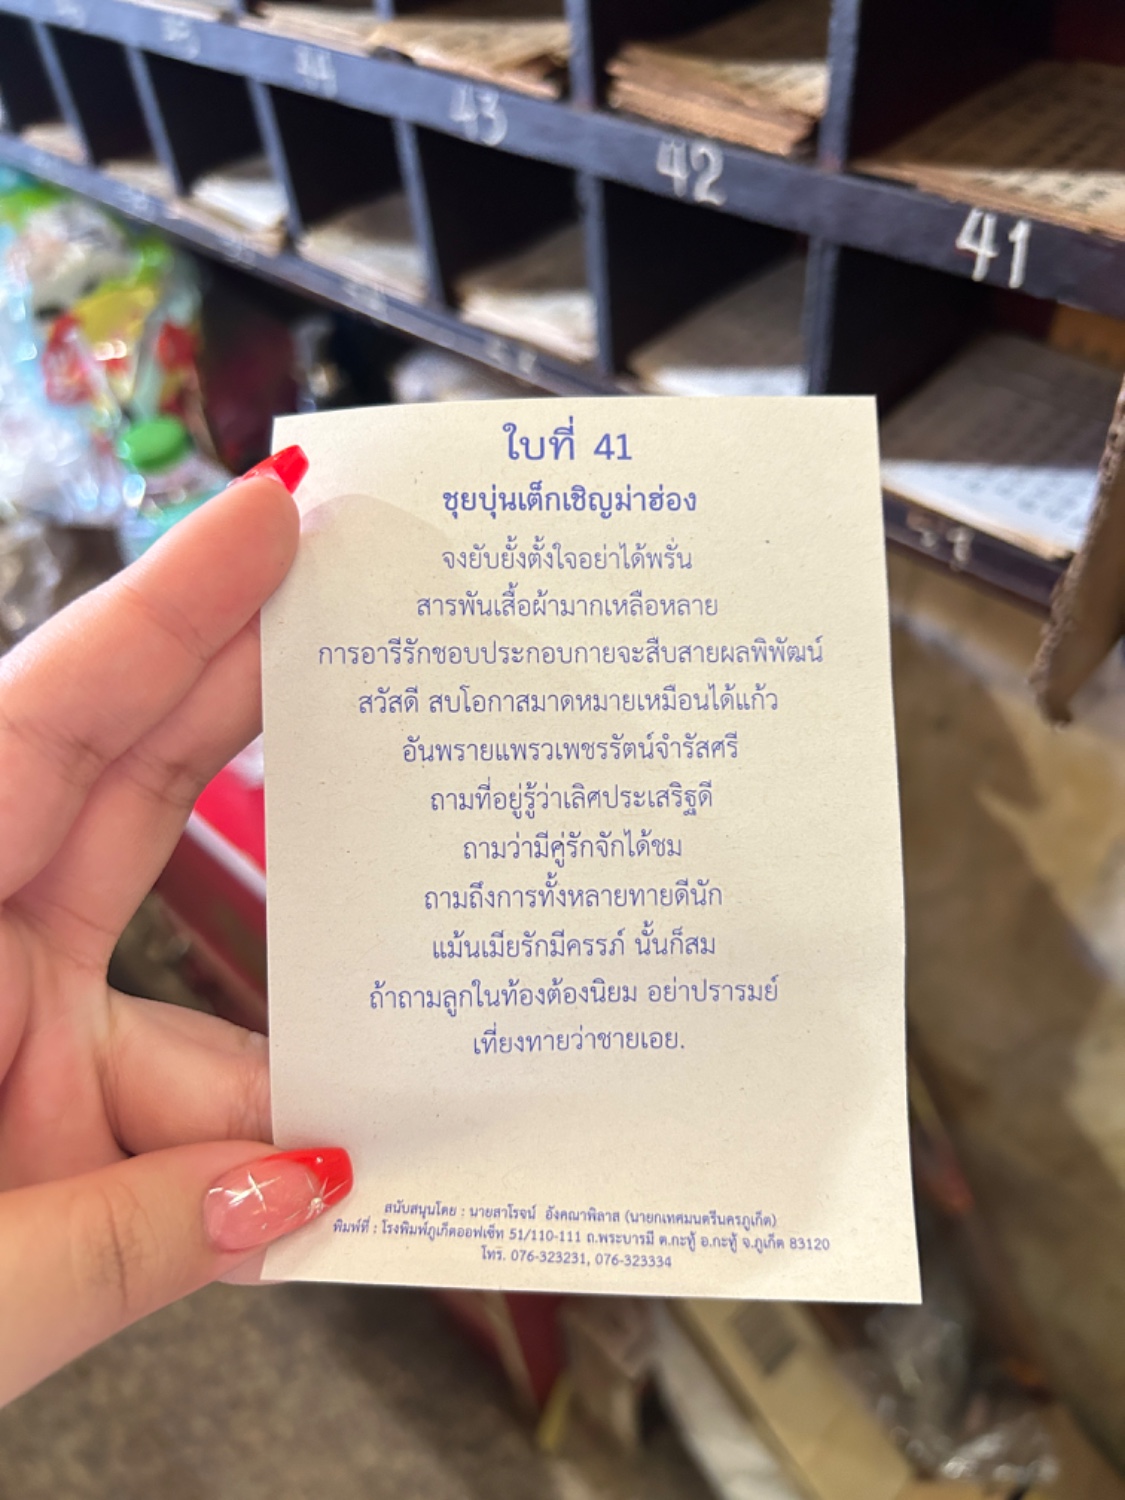 43
42
41
ใบที่ 41
ชุยบุ่นเต็กเชิญม่าฮ่อง
จงยับยั้งตั้งใจอย่าได้พรั่น
สารพันเสื้อผ้ามากเหลือหลาย
การอารีรักชอบประกอบกายจะสืบสายผลพิพัฒน์
สวัสดี สบโอกาสมาดหมายเหมือนได้แก้ว
อันพรายแพรวเพชรรัตน์จำรัสศรี
ถามที่อยู่รู้ว่าเลิศประเสริฐดี
ถามว่ามีคู่รักจักได้ชม
ถามถึงการทั้งหลายทายดีนัก
แม้นเมียรักมีครรภ์ นั้นก็สม
ถ้าถามลูกในท้องต้องนิยม อย่าปรารมย์
เที่ยงทายว่าชายเอย.
สนับสนุนโดย : นายสาโรจน์ อังคณาพิลาส (นายกเทศมนตรีนครภูเก็ต)
พิมพ์ที่ : โรงพิมพ์ภูเก็ตออฟเซ็ท 51/110-111 ถ.พระบารมี ต.กะทู้ อ.กะทู้ จ.ภูเก็ต 83120
โทร. 076-323231, 076-323334